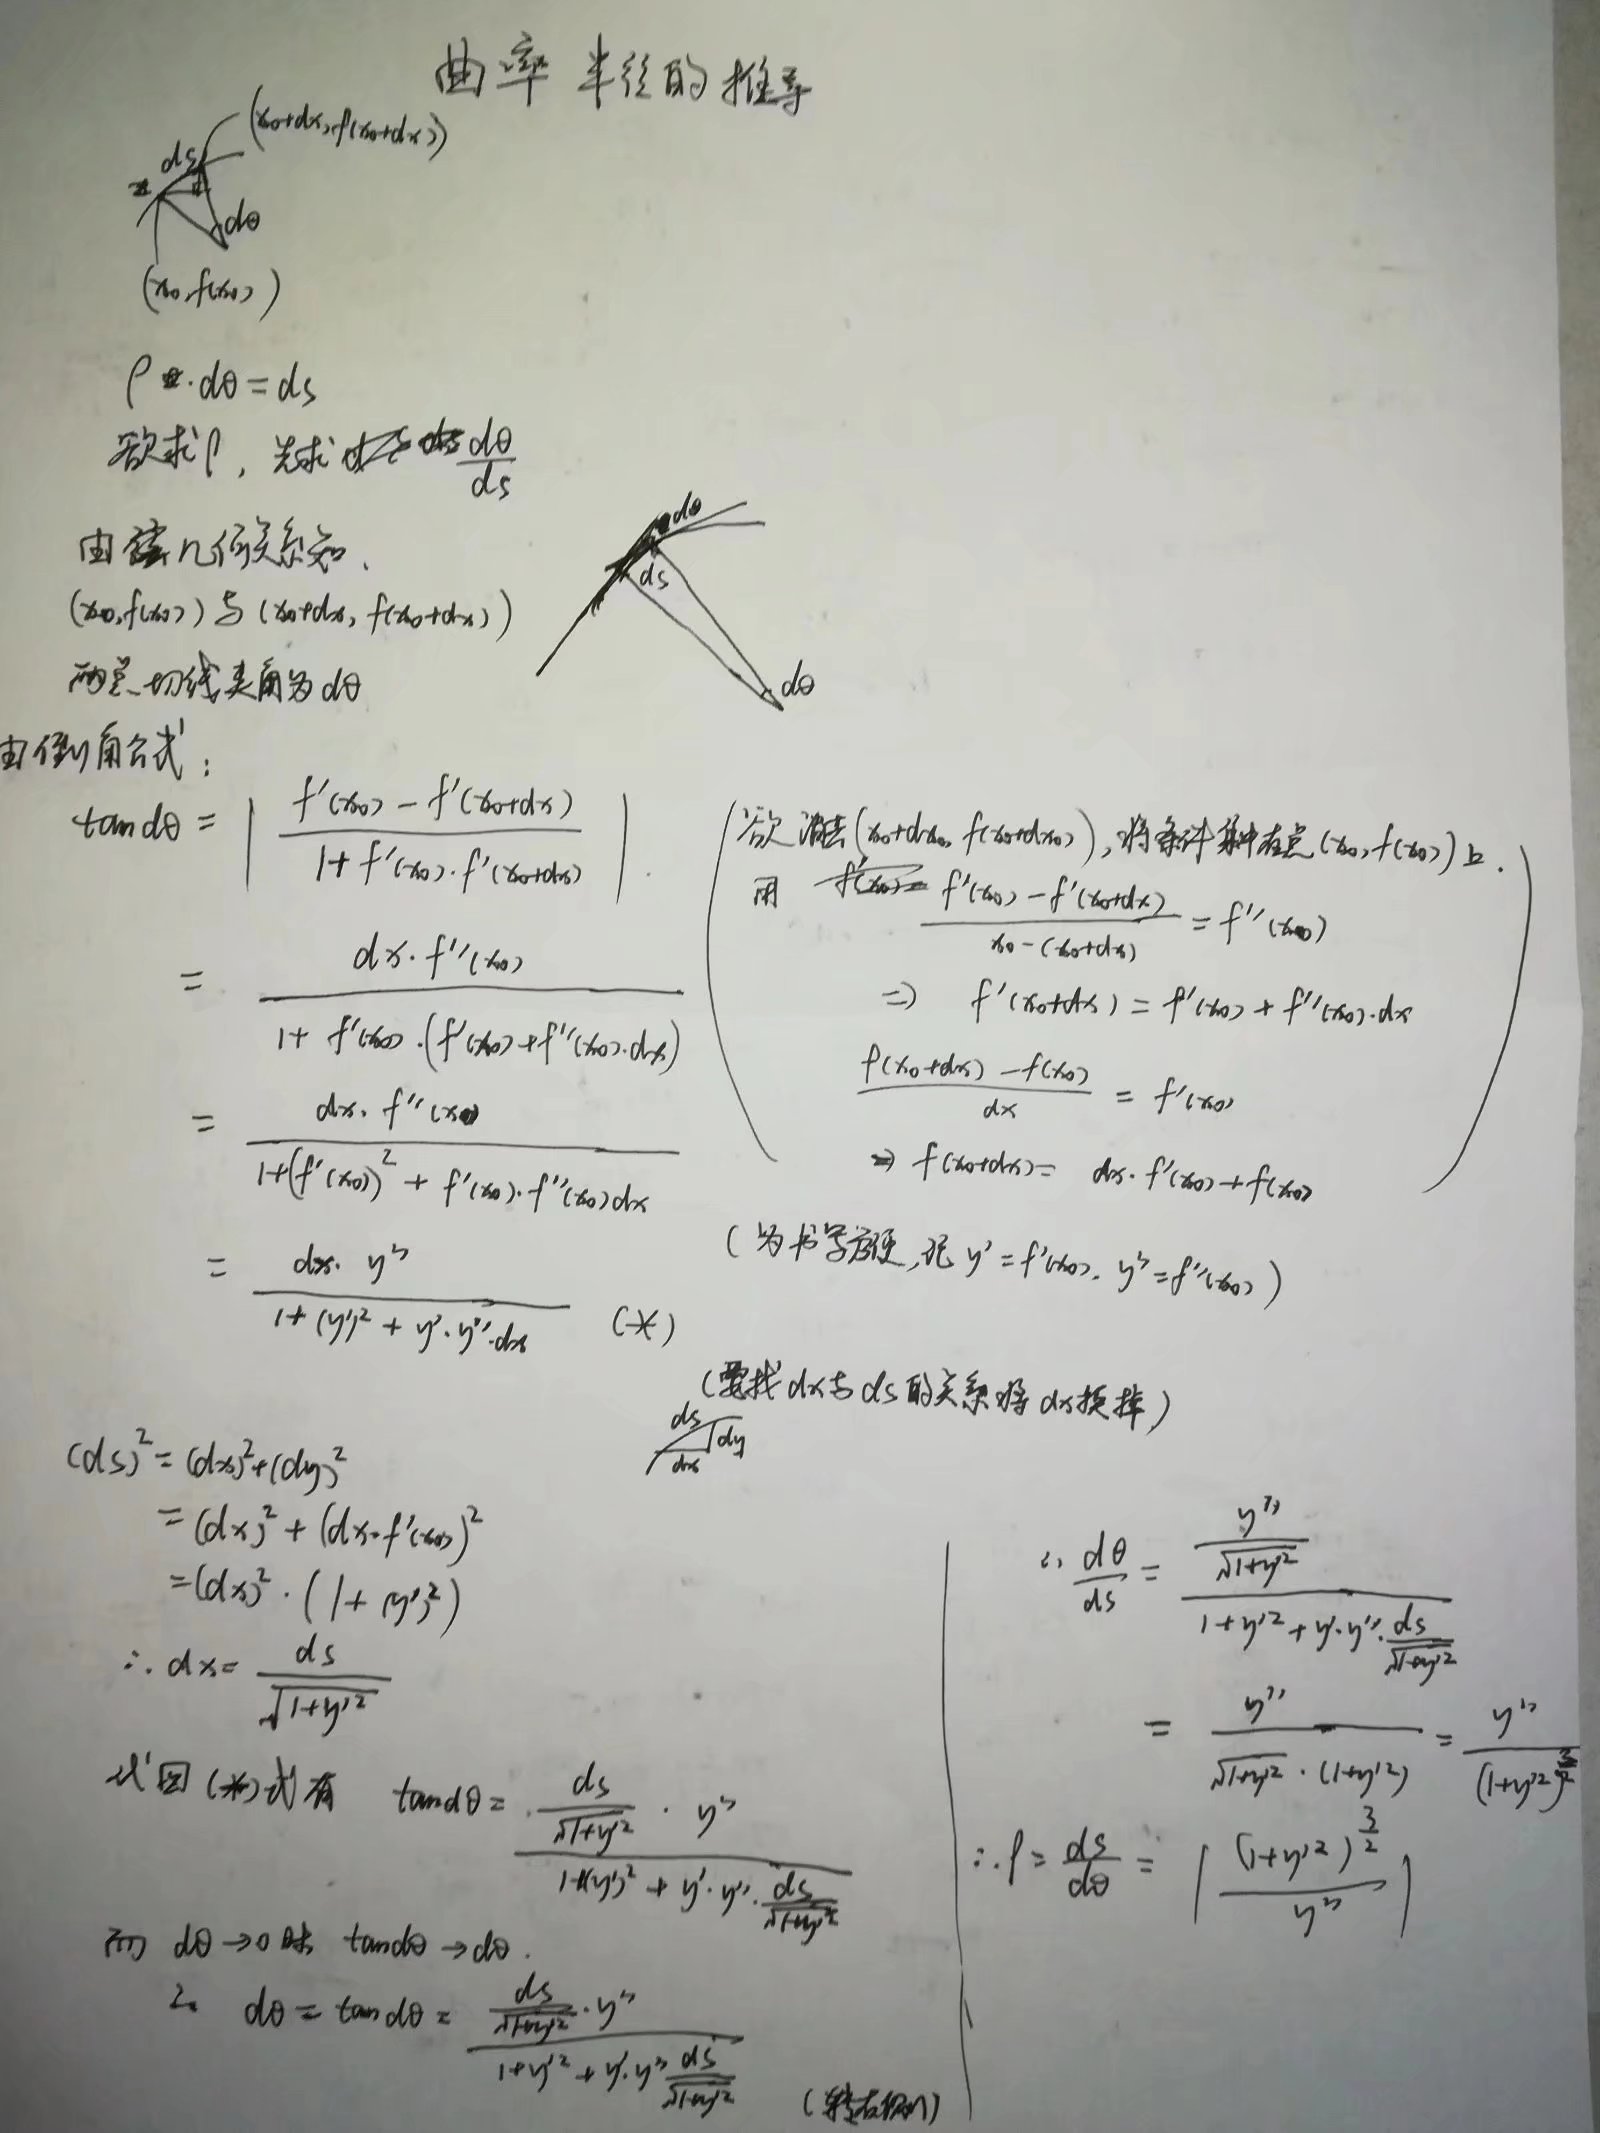 曲率半径的推导
(x₀+dx, f(x₀+dx))
ds
dθ
(x₀, f(x₀))
ρ·dθ=ds
欲求ρ, 先求 dθ/ds
由几何关系知,
(x₀, f(x₀)) 与 (x₀+dx, f(x₀+dx))
两点切线夹角为dθ
dθ
ds
dθ
由倒角公式:
tandθ = | (f'(x₀) - f'(x₀+dx)) / (1+f'(x₀)·f'(x₀+dx)) |
= dx·f''(x₀) / (1+f'(x₀)·(f'(x₀)+f''(x₀)·dx))
= dx·f''(x₀) / (1+(f'(x₀))²+f'(x₀)·f''(x₀)dx)
= dx·y'' / (1+(y')²+y'·y''·dx) (*)
欲消去(x₀+dx₀, f(x₀+dx₀)), 将条件集中在点(x₀, f(x₀))上.
用 (f'(x₀) - f'(x₀+dx)) / (x₀-(x₀+dx)) = f''(x₀)
⇒ f'(x₀+dx) = f'(x₀)+f''(x₀)·dx
(f(x₀+dx) - f(x₀)) / dx = f'(x₀)
⇒ f(x₀+dx) = dx·f'(x₀)+f(x₀)
(为书写方便, 记 y'=f'(x₀), y''=f''(x₀))
(要找dx与ds的关系将dx换掉)
ds
dy
dx
(ds)²=(dx)²+(dy)²
=(dx)²+(dx·f'(x₀))²
=(dx)²·(1+(y')²)
∴dx= ds/√(1+y'²)
代回(*)式有 tandθ = (ds/√(1+y'²)·y'') / (1+(y')²+y'·y''·ds/√(1+y'²))
而 dθ→0时 tandθ→dθ.
∴ dθ=tandθ= (ds/√(1+y'²)·y'') / (1+y'²+y'·y'' ds/√(1+y'²))
(转右侧)
∴ dθ/ds = (y''/√(1+y'²)) / (1+y'²+y'·y''·ds/√(1+y'²))
= y'' / (√(1+y'²)·(1+y'²)) = y'' / (1+y'²)^(3/2)
∴ρ= ds/dθ = | (1+y'²)^(3/2) / y'' |